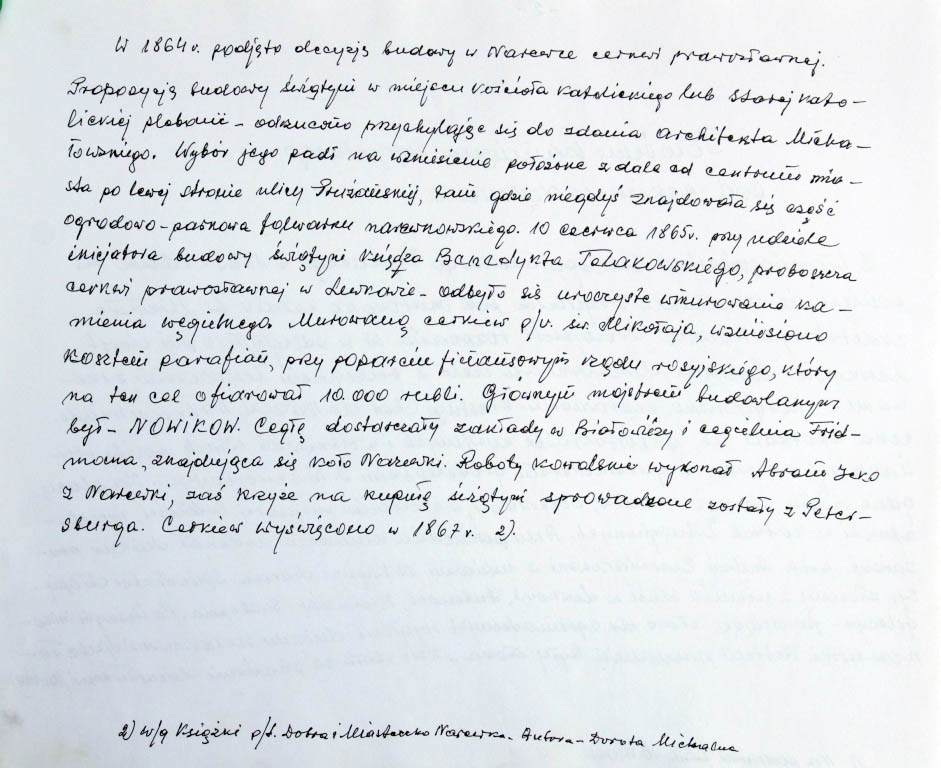 W 1864 r. podjęto decyzję budowy w Narewce cerkwi prawosławnej.
Propozycję budowy świątyni w miejscu kościoła katolickiego lub starej kato-
lickiej plebanii - odrzucono przychylając się do zdania architekta Micha-
łowskiego. Wybór jego padł na wzniesienie położone z dala od centrum mia-
sta po lewej stronie ulicy Prużańskiej, tam gdzie niegdyś znajdowała się część
ogrodowo-parkowa folwarku narewkowskiego. 10 czerwca 1865 r. przy udziale
inicjatora budowy świątyni księdza Benedykta Tałakowskiego, proboszcza
cerkwi prawosławnej w Lewkowie - odbyło się uroczyste wmurowanie ka-
mienia węgielnego. Murowaną cerkiew p/w. św. Mikołaja, wzniesiono
kosztem parafian, przy poparciu finansowym rządu rosyjskiego, który
na ten cel ofiarował 10.000 rubli. Głównym majstrem budowlanym
był - NOWIKOW. Cegłę dostarczały zakłady w Białowieży i cegielnia Frid-
mana, znajdująca się koło Narewki. Roboty kowalskie wykonał Abram Icko
z Narewki, zaś krzyże na kopułę świątyni sprowadzone zostały z Peter-
sburga. Cerkiew wyświęcono w 1867 r. 2).
2) w/g Książki p/t. Dobra i Miasteczko Narewka - Autora - Dorota Michaluk